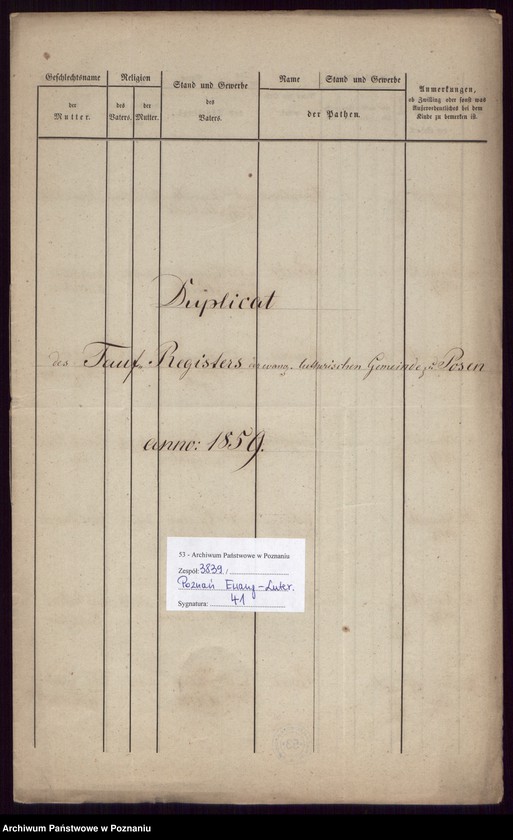 Geschlechtsname
der
Mutter.
Religion
des
Vaters.
der
Mutter.
Stand und Gewerbe
des
Vaters.
Name
Stand und Gewerbe
der Pathen.
Anmerkungen,
ob Zwilling oder sonst was
Außerordentliches bei dem
Kinde zu bemerken ist.
Duplicat
des Tauf-Registers der evang. lutherischen Gemeinde zu Posen
anno: 1859.
53 - Archiwum Państwowe w Poznaniu
Zespół: 3839 /
Poznań Ewang-Luter.
Sygnatura: 41
Archiwum Państwowe w Poznaniu